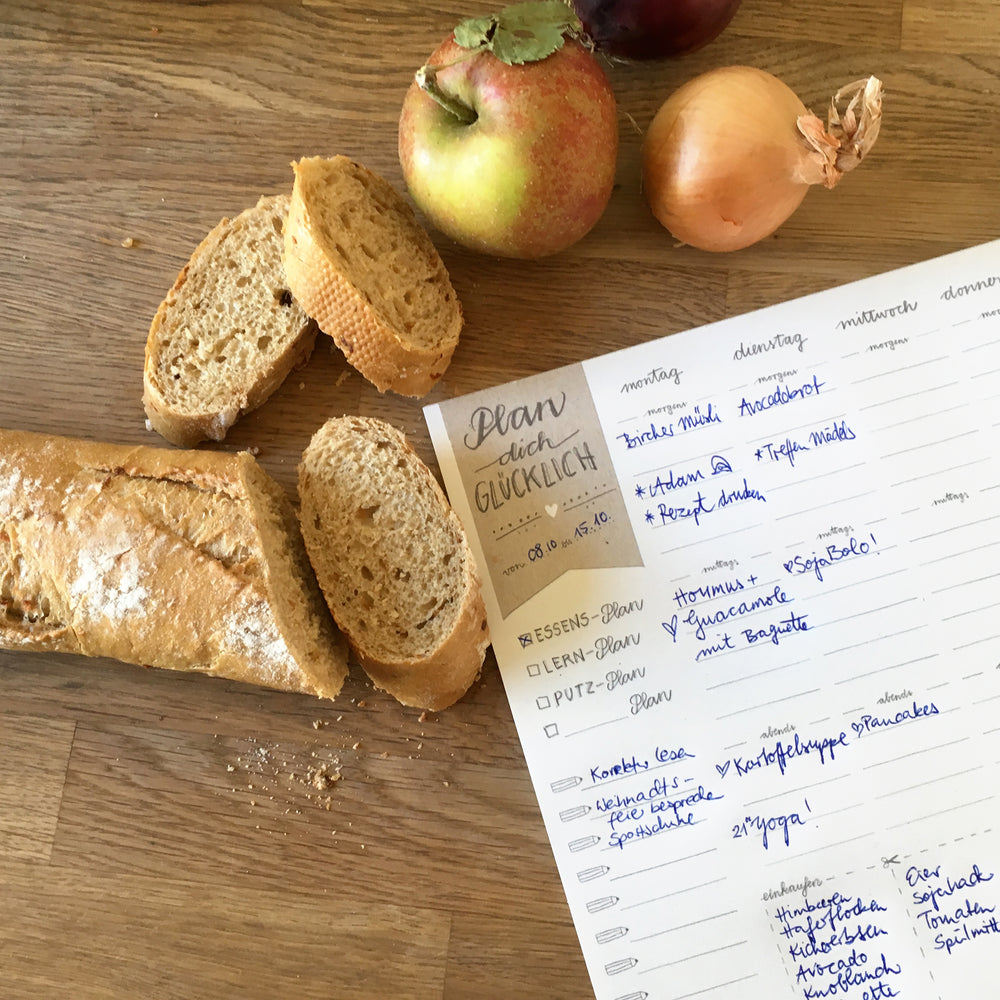 Plan
dich
GLÜCKLICH
von 08.10 bis 15.10.
ESSENS-Plan
LERN-Plan
PUTZ-Plan
Plan
Korrektur lesen
Weihnachts-
feier besprechen
Sportschuhe
montag
morgens
Bircher Müsli
* Adam
* Rezept drucken
mittags
Houmus +
Guacamole
mit Baguette
abends
Kartoffelsuppe
21:00 Yoga!
dienstag
morgens
Avocadobrot
* Treffen Mädels
mittags
SojaBolo!
abends
Pancakes
mittwoch
morgens
mittags
donner
einkaufen
Himbeeren
Haferflocken
Kichererbsen
Avocado
Knoblauch
ette
Eier
Sojahack
Tomaten
Spülmitt